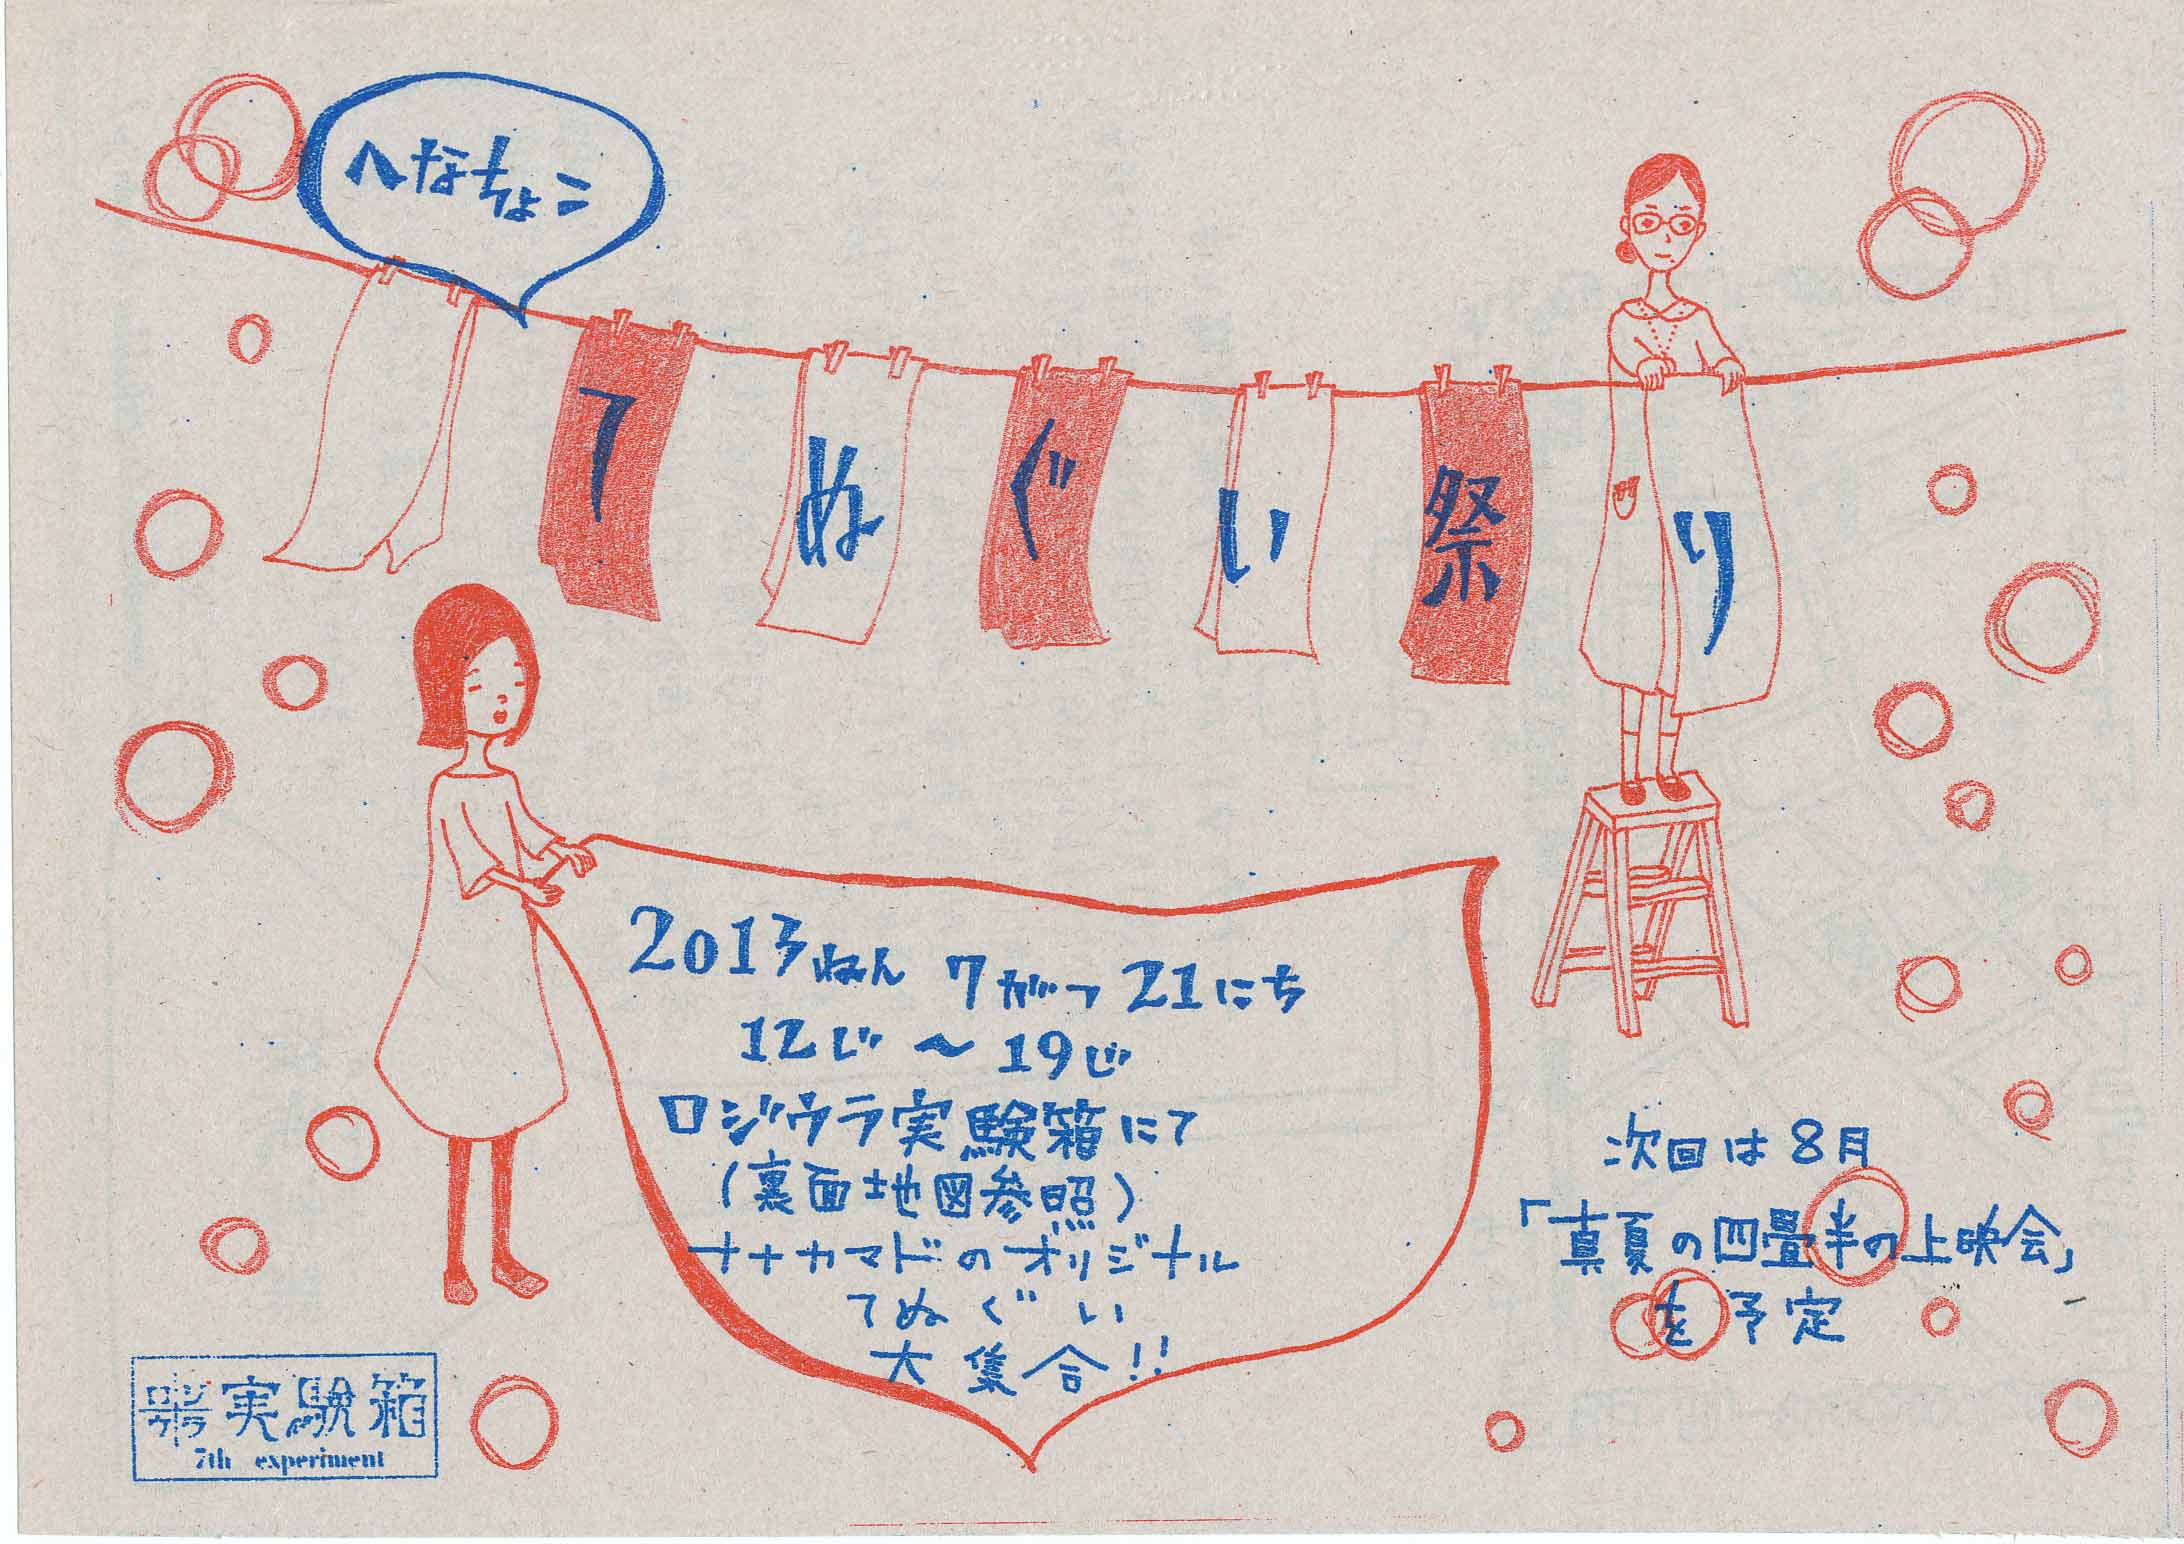 へなちょこ
てぬぐい祭り
2013ねん 7がつ 21にち
12じ〜19じ
ロジウラ実験箱にて
(裏面地図参照)
ナナカマドのオリジナル
てぬぐい
大集合!!
次回は8月
「真夏の四畳半の上映会」
を予定
ロジウラ実験箱
7th experiment